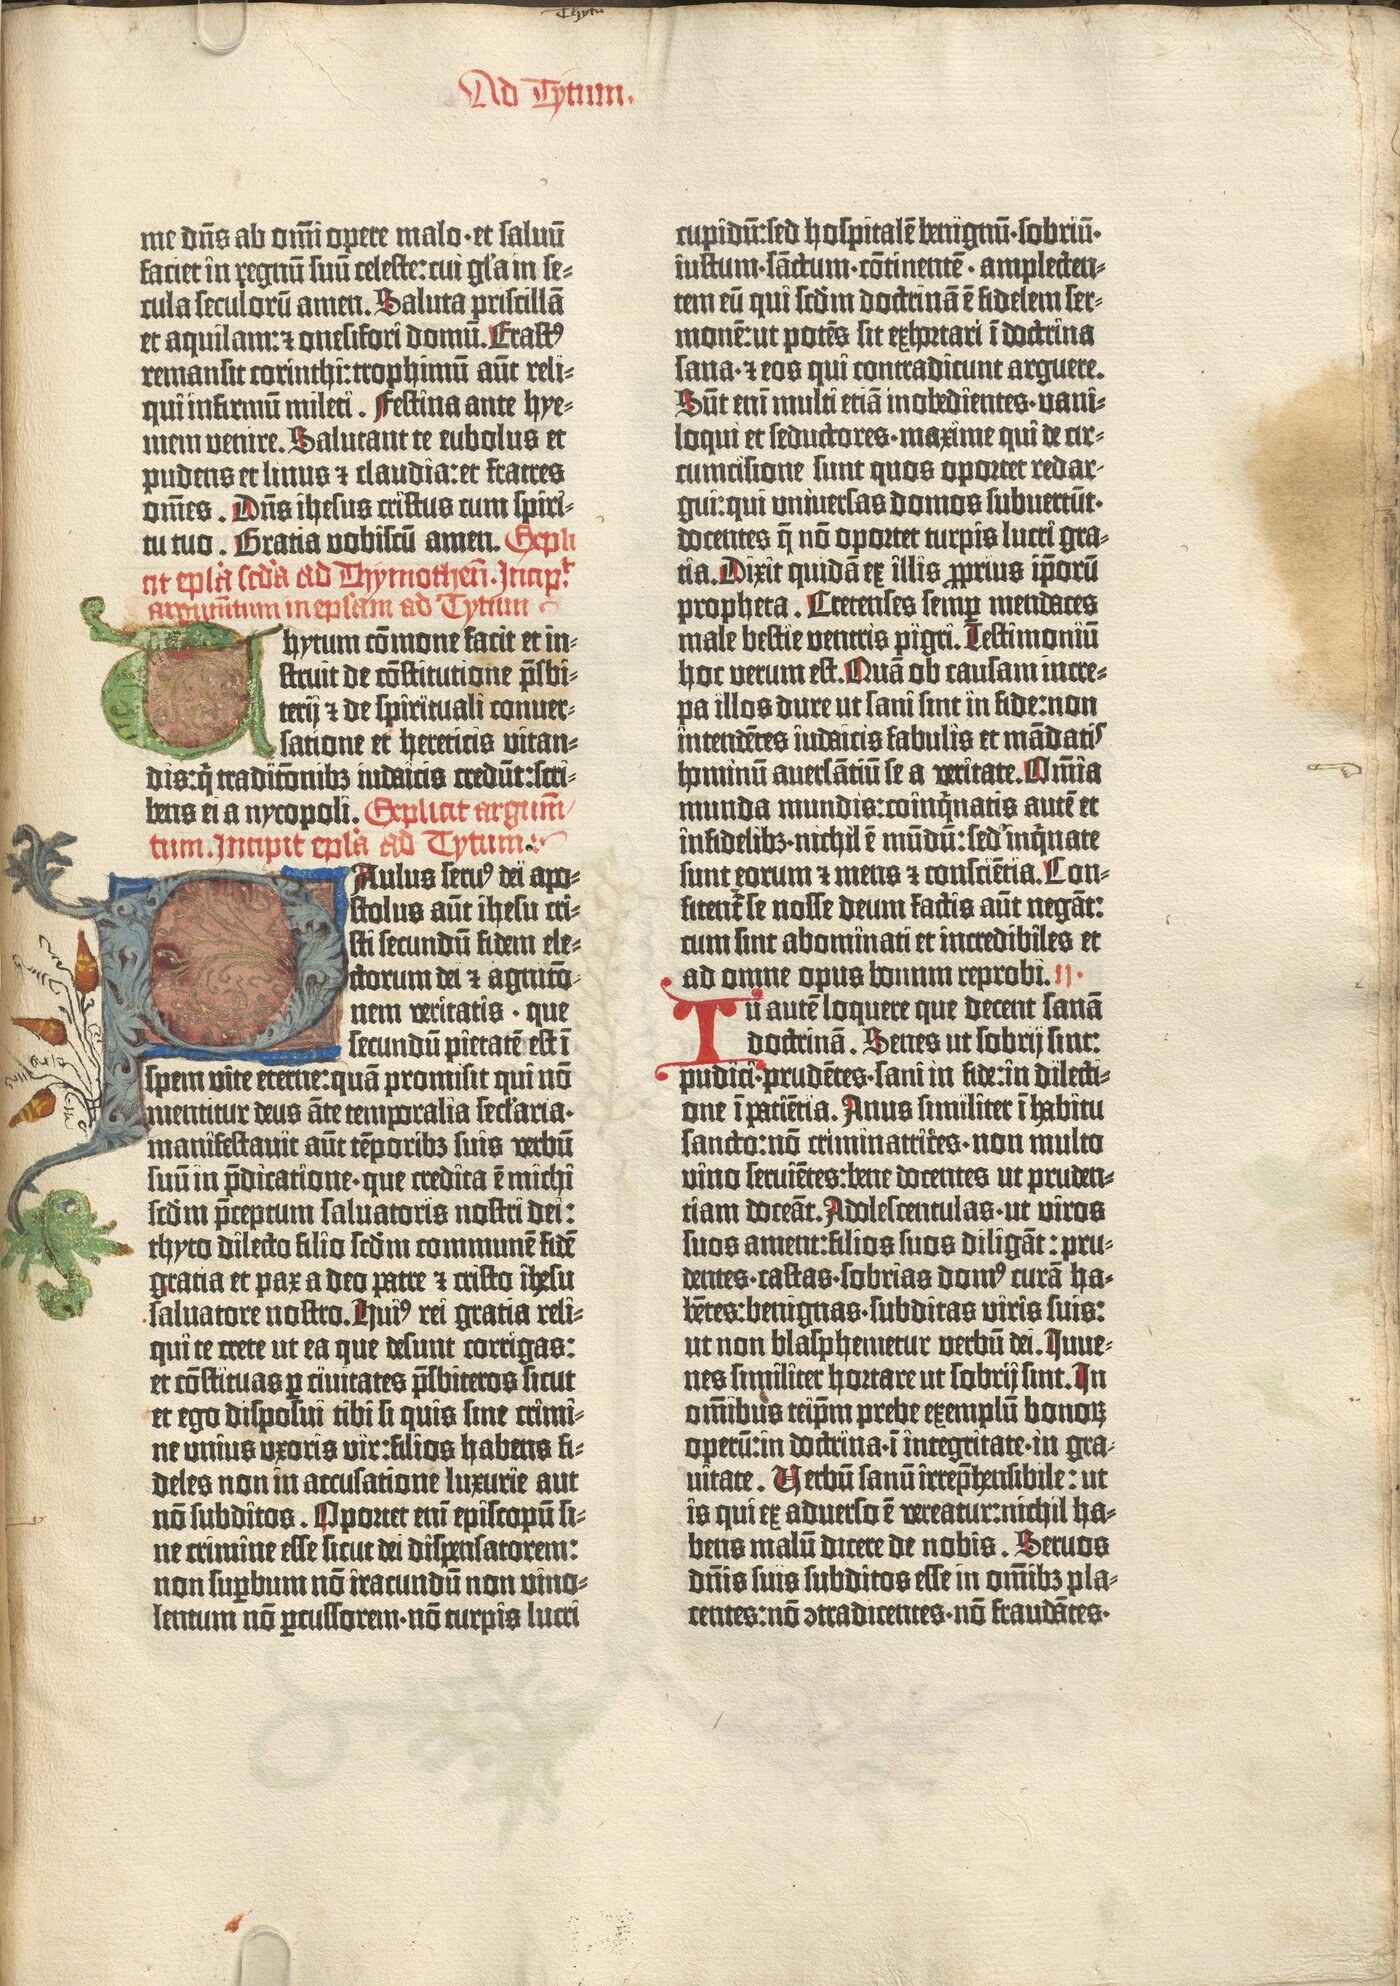 Thytū
Ad Tytum.
me dn̄s ab om̄i opere malo·et saluū
faciet in regnū suū celeste:cui gl'a in se-
cula seculorū amen. Saluta priscillā
et aquilam:⁊ onesifori domū. Erastꝰ
remansit corinthi:trophimū aūt reli-
qui infirmū mileti. Festina ante hye-
mem venire. Salutant te eubolus et
pudens et linus ⁊ claudia:et fratres
om̄es. Dn̄s ihesus cristus cum spiri-
tu tuo. Gratia vobiscū amen. Expli
cit epl'a scd'a ad Thymotheū. Incip.t
argumētum in epl'am ad Tytum
Thytum cōmone facit et in-
struit de cōstitutione p̄sbi-
terij ⁊ de spirituali conuer-
satione et hereticis vitan-
dis:q̄ traditōnibꝫ iudaicis credūt:scri-
bens ei a nycopoli. Explicit argum̄
tum. Incipit epl'a ad Tytum:
PAulus seruꝰ dei apo-
stolus aūt ihesu cri-
sti secundū fidem ele-
ctorum dei ⁊ agnitō-
nem veritatis · que
secundū pietatē est ī
spem vite eterne:quā promisit qui nō
mentitur deus āte temporalia secl'aria·
manifestauit aūt tēporibꝫ suis verbū
suū in p̄dicatione·que credita ē michi
scd'm p̄ceptum saluatoris nostri dei:
thyto dilecto filio scd'm communē fidē
gratia et pax a deo patre ⁊ cristo ihesu
saluatore nostro. Huiꝰ rei gratia reli-
qui te crete ut ea que desunt corrigas:
et cōstituas ꝑ ciuitates p̄sbiteros sicut
et ego disposui tibi si quis sine crimi-
ne vnius vxoris vir:filios habens fi-
deles non in accusatione luxurie aut
nō subditos. Oportet enī episcopū si-
ne crimine esse sicut dei dispensatorem:
non suꝑbum nō iracundū non vino-
lentum nō ꝑcussorem·nō turpis lucri
cupidū:sed hospitalē benignū·sobriū·
iustum·sāctum·cōtinentē·amplecten-
tem eū qui scd'm doctrinā ē fidelem ser-
monē:ut potēs sit exhortari ī doctrina
sana·⁊ eos qui contradicunt arguere.
Sūt enī multi etiā inobedientes·vani-
loqui et seductores·maxime qui de cir-
cumcisione sunt quos oportet redar-
gui:qui vniuersas domos subuertūt·
docentes q̄ nō oportet turpis lucri gra-
tia. Dixit quidā ex illis ꝓprius ip̄orū
propheta. Cretenses semꝑ mendaces
male bestie ventris pigri. Testimoniū
hoc verum est. Quā ob causam incre-
pa illos dure ut sani sint in fide:non
intendētes iudaicis fabulis et mādatis
hominū auersātiū se a veritate. Om̄ia
munda mundis:coinq̄natis autē et
infidelibꝫ·nichil ē mūdū:sed inq̄nate
sunt eorum ⁊ mens ⁊ consciētia. Con-
fitent̄ se nosse deum factis aūt negāt:
cum sint abominati et incredibiles et
ad omne opus bonum reprobi. II.
Tu autē loquere que decent sanā
doctrinā. Senes ut sobrij sint:
pudici·prudētes·sani in fide:in dilecti-
one ī patiētia. Anus similiter ī habitu
sancto:nō criminatrices·non multo
vino seruiētes:bene docentes ut pruden-
tiam doceāt. Adolescentulas·ut viros
suos ament:filios suos diligāt:pru-
dentes·castas·sobrias domꝰ curā ha-
bētes:benignas·subditas viris suis:
ut non blasphemetur verbū dei. Iuue-
nes similiter hortare ut sobrij sint. In
om̄ibus teip̄m prebe exemplū bonoꝝ
operū:in doctrina·ī integritate·in gra-
uitate. Verbū sanū irrep̄hensibile:ut
is qui ex aduerso ē vereatur:nichil ha-
bens malū dicere de nobis. Seruos
dn̄is suis subditos esse in om̄ibꝫ pla-
centes:nō ꝯtradicentes·nō fraudātes·